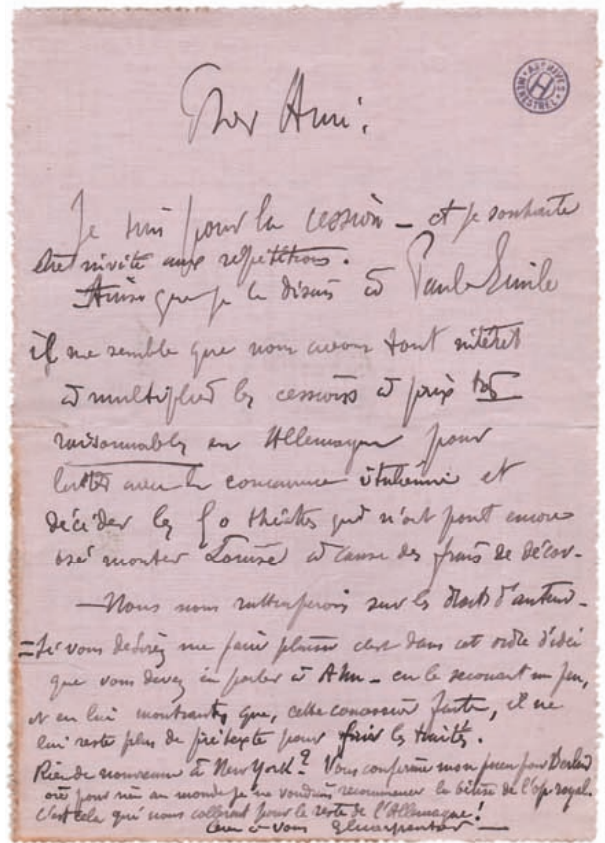 ARCHIVES MENESTREL H
Cher Ami.
Je suis pour la cession – et je souhaite
être invité aux répétitions.
Ainsi que je le disais à Paul-Emile
il me semble que nous avons tout intérêt
à multiplier les cessions à prix très
raisonnables en Allemagne pour
lutter avec la concurrence italienne et
décider les 50 théâtres qui n'ont point encore
osé monter Louise à cause des frais de décor –
– Nous nous rattraperons sur les droits d'auteur –
= Si vous désirez me faire plaisir c'est dans cet ordre d'idée
que vous devez en parler à Ahn – en le secouant un peu,
et en lui montrant que, cette concession faite, il ne
lui reste plus de prétexte pour fuir les traités.
Rien de nouveau à New York? Vous confirme mon pour Berlin
où pour rien au monde je ne voudrais recommencer la bêtise de l'op royal.
C'est cela qui nous collerait pour le reste de l'Allemagne!
à vous GCharpentier –